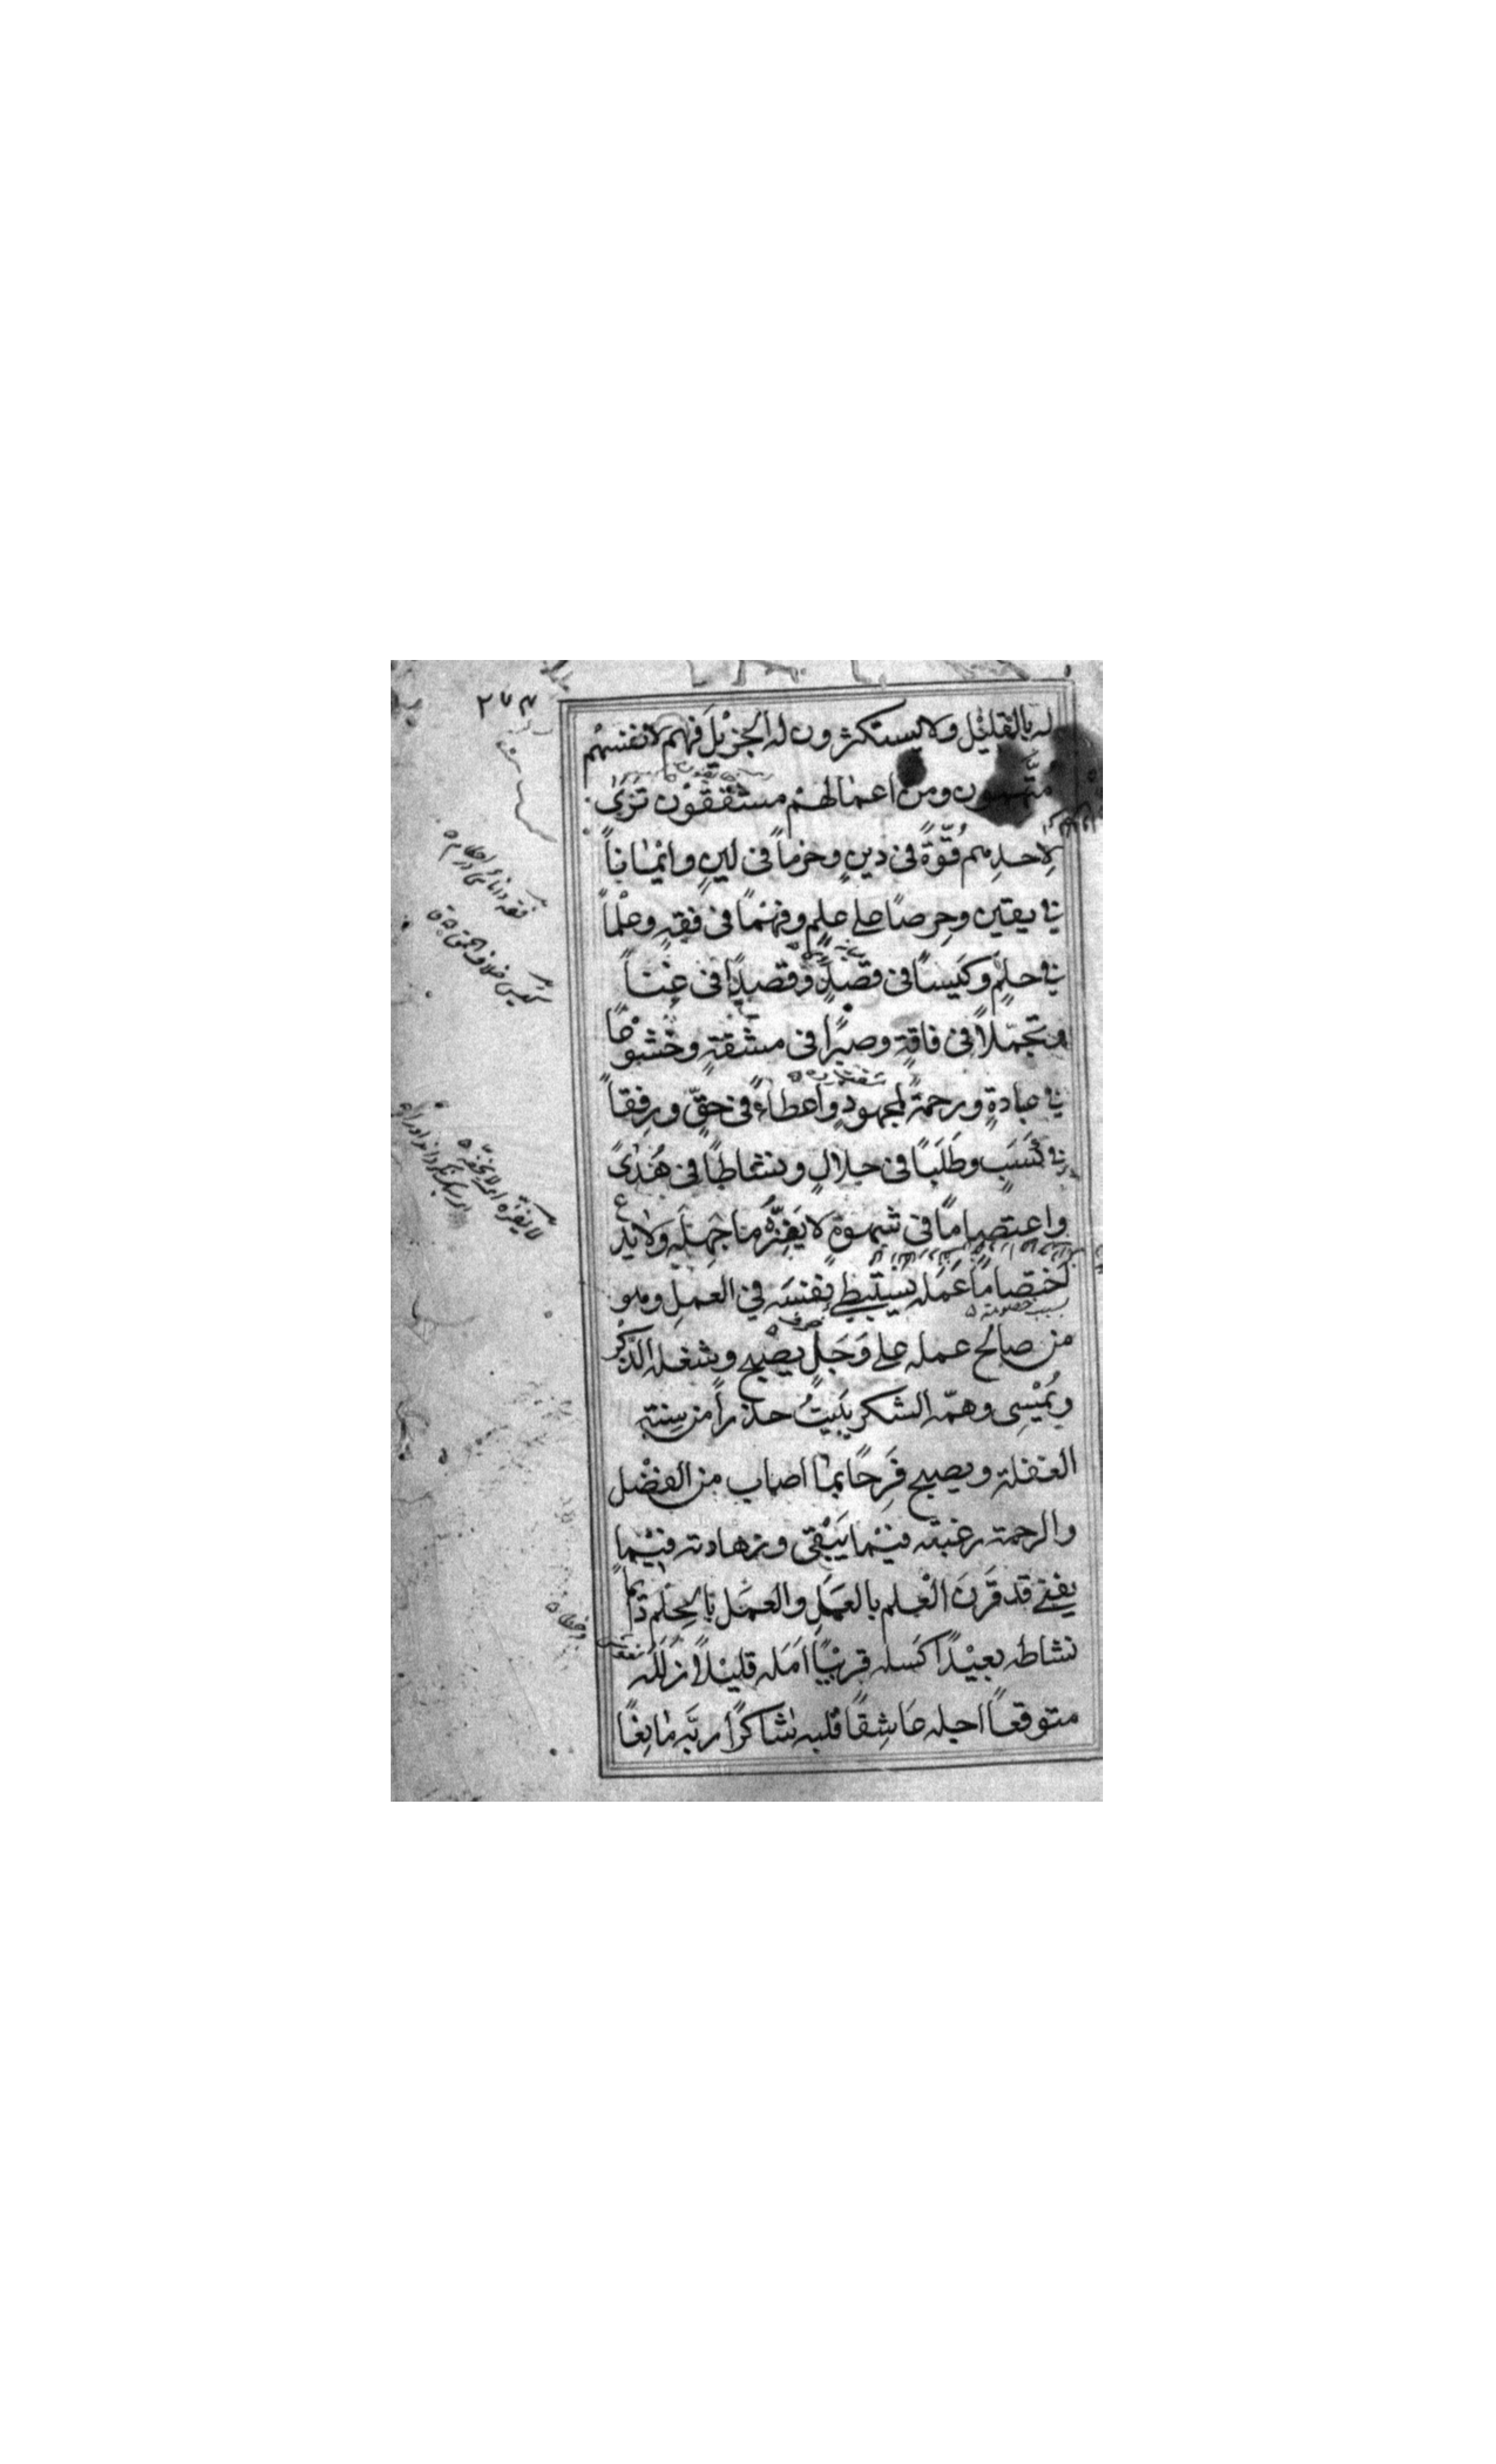 ٢٧٣
له بالقليل ولا يستكثرون له الجزيل فهم لانفسهم
متّهمون ومن اعمالهم مشفقون ترى
لاحدهم قُوّةً فى دينٍ وحزماً فى لينٍ وايماناً
فى يقين وحِرصًا على علمٍ وفهمًا فى فقهٍ وعلْماً
فى حلمٍ وكَيسًا فى قصدٍ وقصدًا فى غِناً
وتجمّلاً فى فاقةٍ وصبرًا فى مشقةٍ وخشوعًا
فى عبادةٍ ورحمةً لمجهودٍ واعطاءً فى حقٍّ ورِفقاً
فى كَسَبٍ وطَلَبًا فى حلالٍ ونشاطًا فى هُدًى
واعتصامًا فى شهوةٍ لا يَغِرُّهُ ما جَهِلَه ولا يدع
عَمَله يستبطئ نفسَه فى العملِ وهو
من صالح عمله على وَجَلٍ يصبح وشغله الذكر
ويُمْسِى وهمّه الشكر يَبِيتُ حذراً من سِنَةِ
الغفلة ويصبح فَرِحًا بما اصاب من الفضْل
والرحمة رغبته فيما يَبْقى وزهادته فيما
يفنى قد قَرَنَ العْلم بالعمَلِ والعمَل بالحِلم دائماً
نشاطه بعيْدًا كَسله قريْبًا امَله قليْلاً زَلَلَه
متوقعاً اجله عاشِقًا قلبه شاكرًا ربّه مانِعًا
فقه دانائى احكام
كيس خلاف الحمق